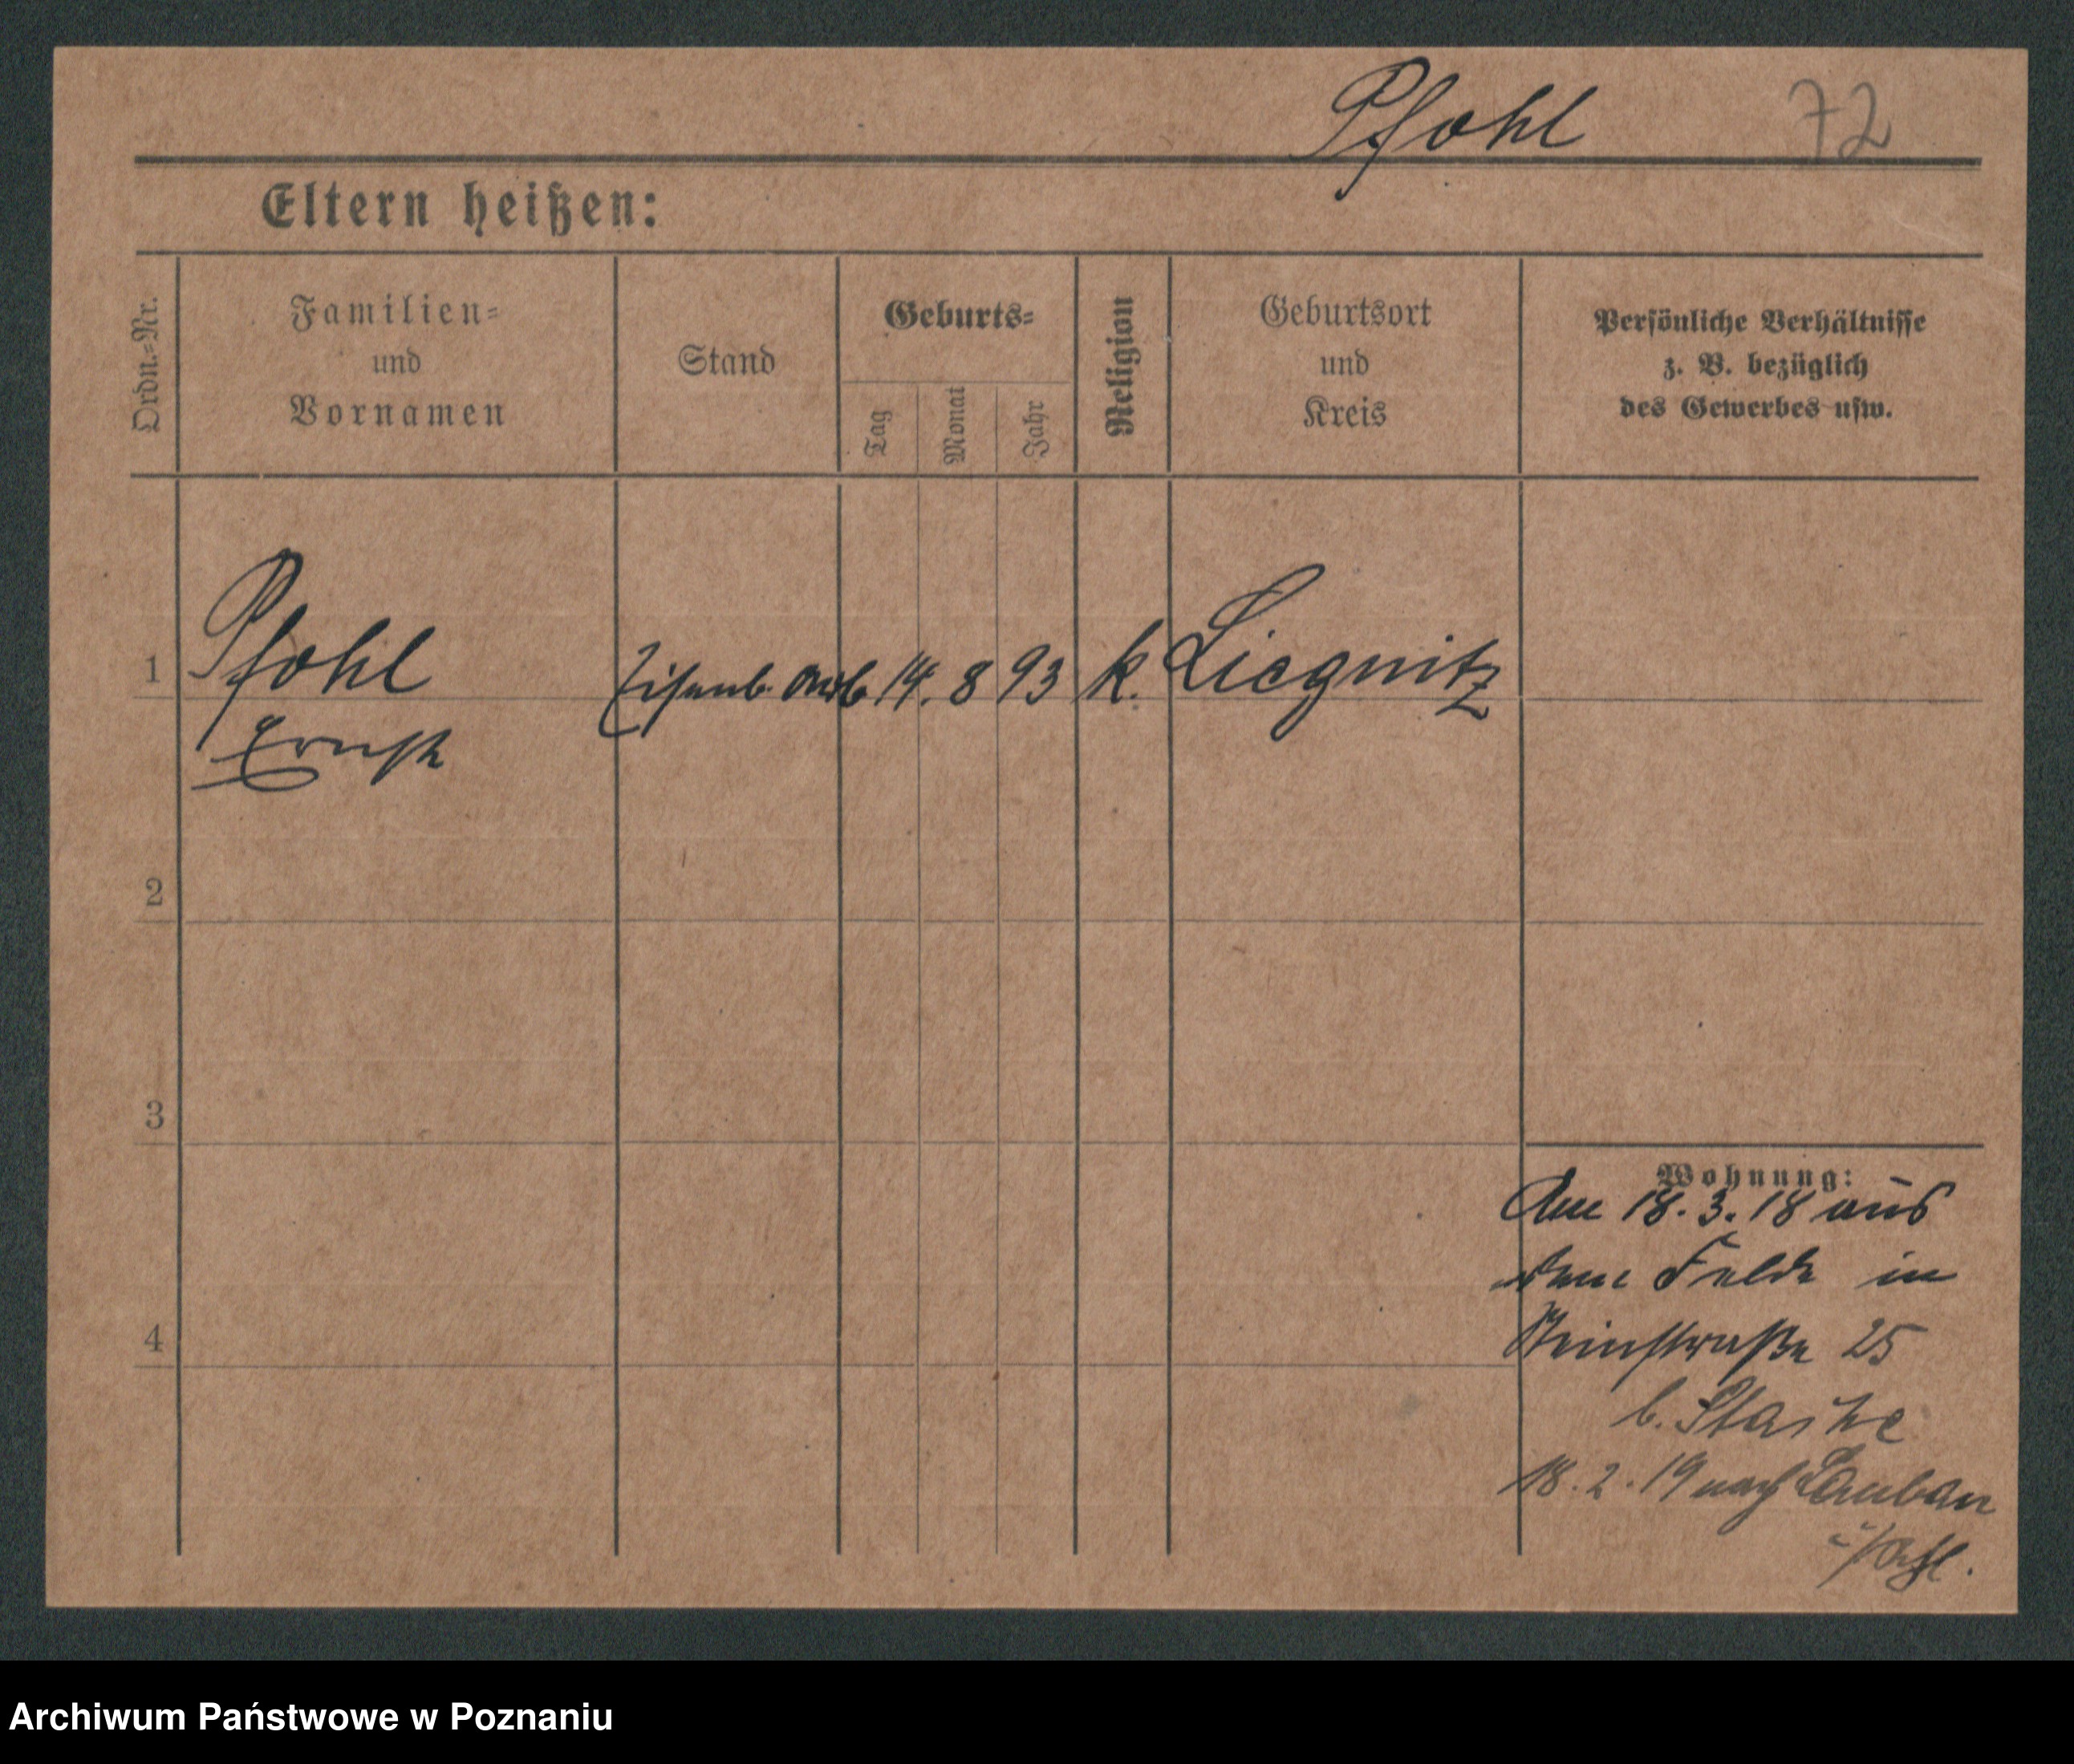 Pfohl 72
Eltern heißen:
Ordn.=Nr.
Familien=
und
Vornamen
Stand
Geburts=
Tag
Monat
Jahr
Religion
Geburtsort
und
Kreis
Persönliche Verhältnisse
z. B. bezüglich
des Gewerbes usw.
1 Pfohl Eisenb. Arb 14. 8 93 k. Liegnitz
Ernst
2
3
Wohnung:
Am 18. 3. 18 aus
dem Felde in
4
Steinstraße 25
b. Staske
18. 2. 19 nach Lauban
i/Schl.
Archiwum Państwowe w Poznaniu